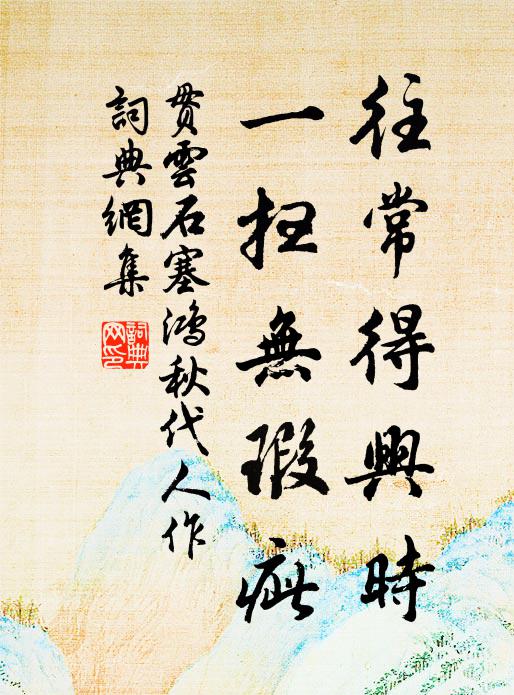 往常得興時
一扫無瑕疵
贯雲石塞鴻秋代人作
詞典網集
詞典網印